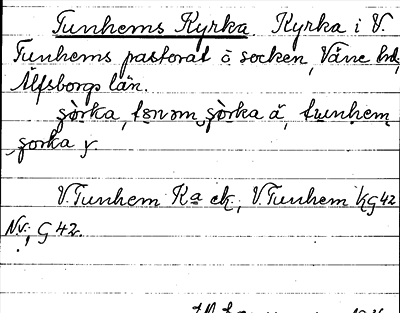 Tunhems Kyrka. Kyrka i V.
Tunhems pastorat o socken, Väne hd,
Älfsborgs län.
sòrka, tsnom sòrka ä, tunhem
sorka y
V. Tunhem Ka ek, V. Tunhem kG 42
N.v.; G 42.